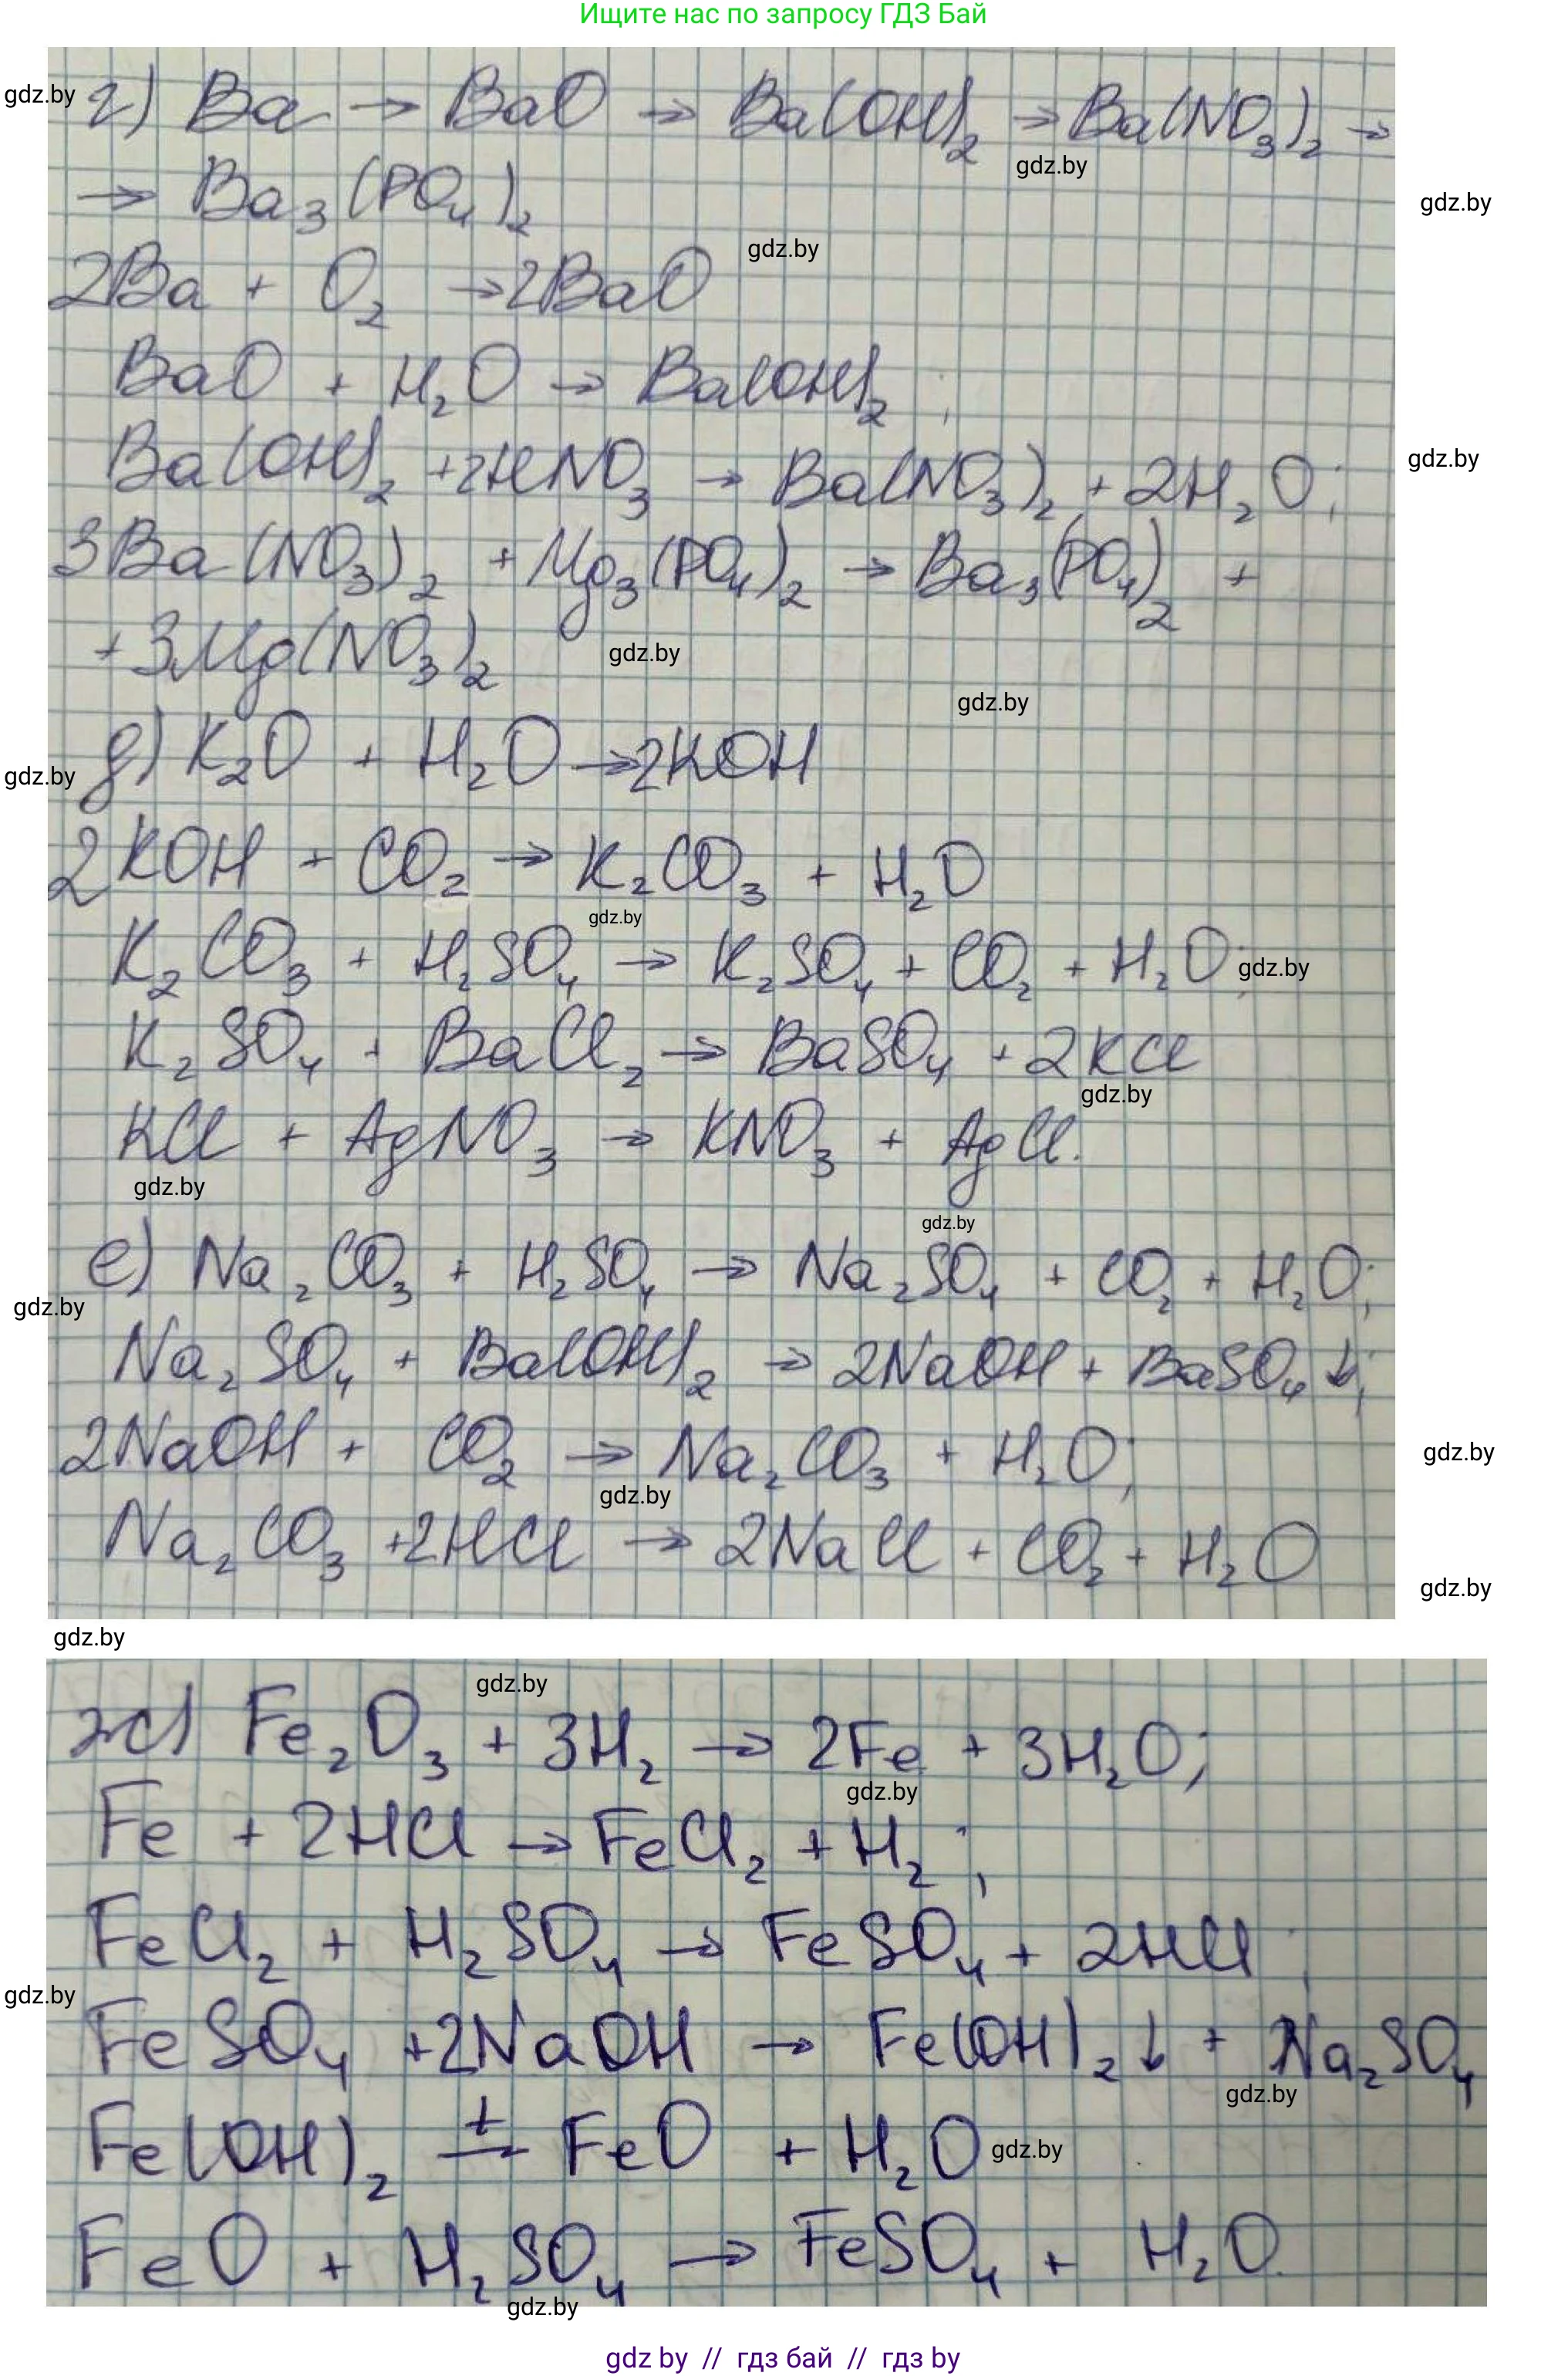 Ищите нас по запросу ГДЗ Бай
gdz.by
г) Ba → BaO → Ba(OH)₂ → Ba(NO₃)₂ →
gdz.by
→ Ba₃(PO₄)₂
gdz.by
gdz.by
2Ba + O₂ → 2BaO
BaO + H₂O → Ba(OH)₂ ;
Ba(OH)₂ + 2HNO₃ → Ba(NO₃)₂ + 2H₂O ;
gdz.by
3Ba(NO₃)₂ + Mg₃(PO₄)₂ → Ba₃(PO₄)₂ +
+ 3Mg(NO₃)₂
gdz.by
gdz.by
д) K₂O + H₂O → 2KOH
gdz.by
2KOH + CO₂ → K₂CO₃ + H₂O
gdz.by
K₂CO₃ + H₂SO₄ → K₂SO₄ + CO₂ + H₂O ;
gdz.by
K₂SO₄ + BaCl₂ → BaSO₄ + 2KCl
gdz.by
KCl + AgNO₃ → KNO₃ + AgCl.
gdz.by
gdz.by
е) Na₂CO₃ + H₂SO₄ → Na₂SO₄ + CO₂ + H₂O ;
gdz.by
Na₂SO₄ + Ba(OH)₂ → 2NaOH + BaSO₄ ↓ ;
2NaOH + CO₂ → Na₂CO₃ + H₂O ;
gdz.by
gdz.by
Na₂CO₃ + 2HCl → 2NaCl + CO₂ + H₂O
gdz.by
gdz.by
gdz.by
ж) Fe₂O₃ + 3H₂ → 2Fe + 3H₂O ;
gdz.by
Fe + 2HCl → FeCl₂ + H₂ ;
FeCl₂ + H₂SO₄ → FeSO₄ + 2HCl ;
gdz.by
FeSO₄ + 2NaOH → Fe(OH)₂ ↓ + Na₂SO₄
gdz.by
Fe(OH)₂ =t= FeO + H₂O
gdz.by
FeO + H₂SO₄ → FeSO₄ + H₂O.
gdz.by
gdz by // гдз бай // гдз by